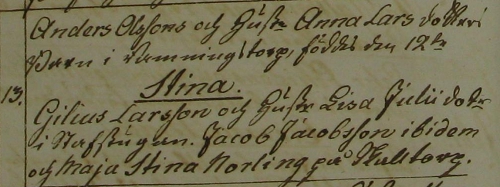 Anders Olssons och Hustr Anna Lars dotters
Barn i Rammingstorp, föddes den 12te
Stina.
13. Gilius Larsson och Hustr Lisa Julii dotr
i Stafstugan. Jacob Jacobsson ibidem
och Maja Stina Norling på Skalltorp.